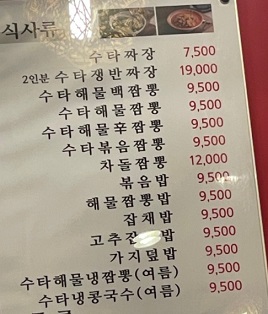 식사류
수타짜장 7,500
2인분 수타쟁반짜장 19,000
수타해물백짬뽕 9,500
수타해물짬뽕 9,500
수타해물후짬뽕 9,500
수타볶음짬뽕 9,500
차돌짬뽕 12,000
볶음밥 9,500
해물짬뽕밥 9,500
잡채밥 9,500
고추잡 밥 9,500
가지덮밥 9,500
수타해물냉짬뽕(여름) 9,500
수타냉콩국수(여름) 9,500